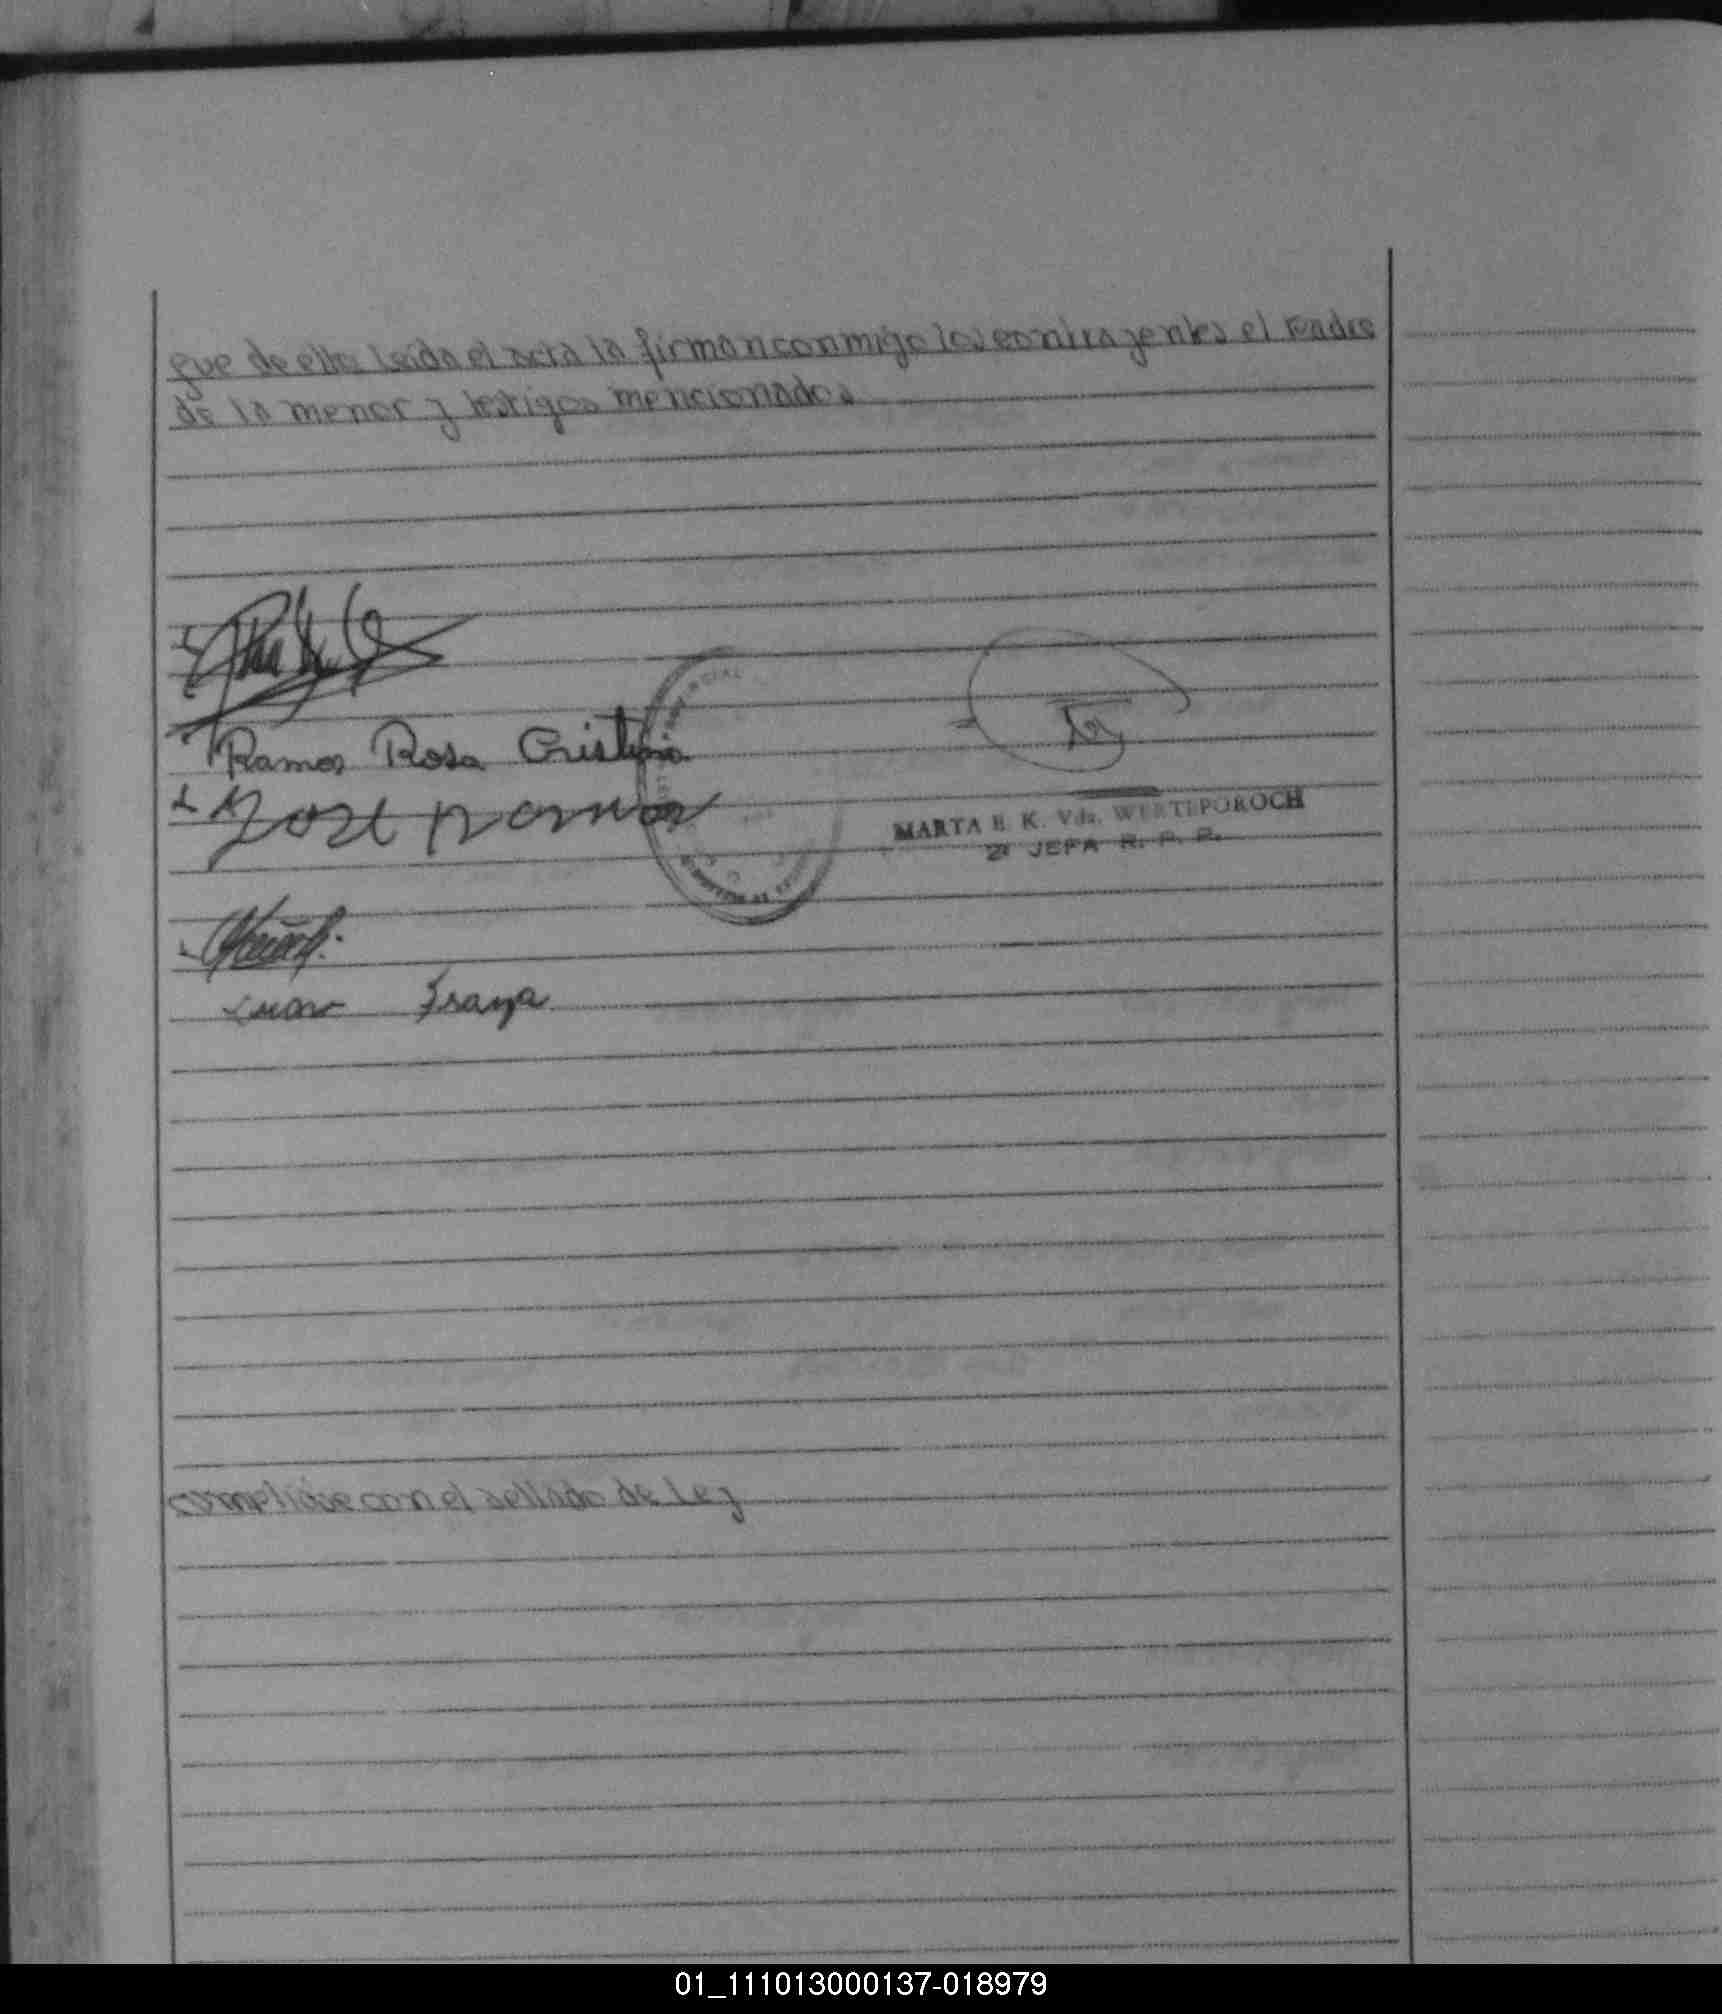 que de ella leida el acta la firman conmigo los contrayentes el Padre
de la menor y testigos mencionados
Ramos Rosa Cristina
Jose Ramos
MARTA E. K. Vda. WERTEPOROCH
JEFA R. P. P.
Juan
cumplidse con el sellado de Ley
01_111013000137-018979